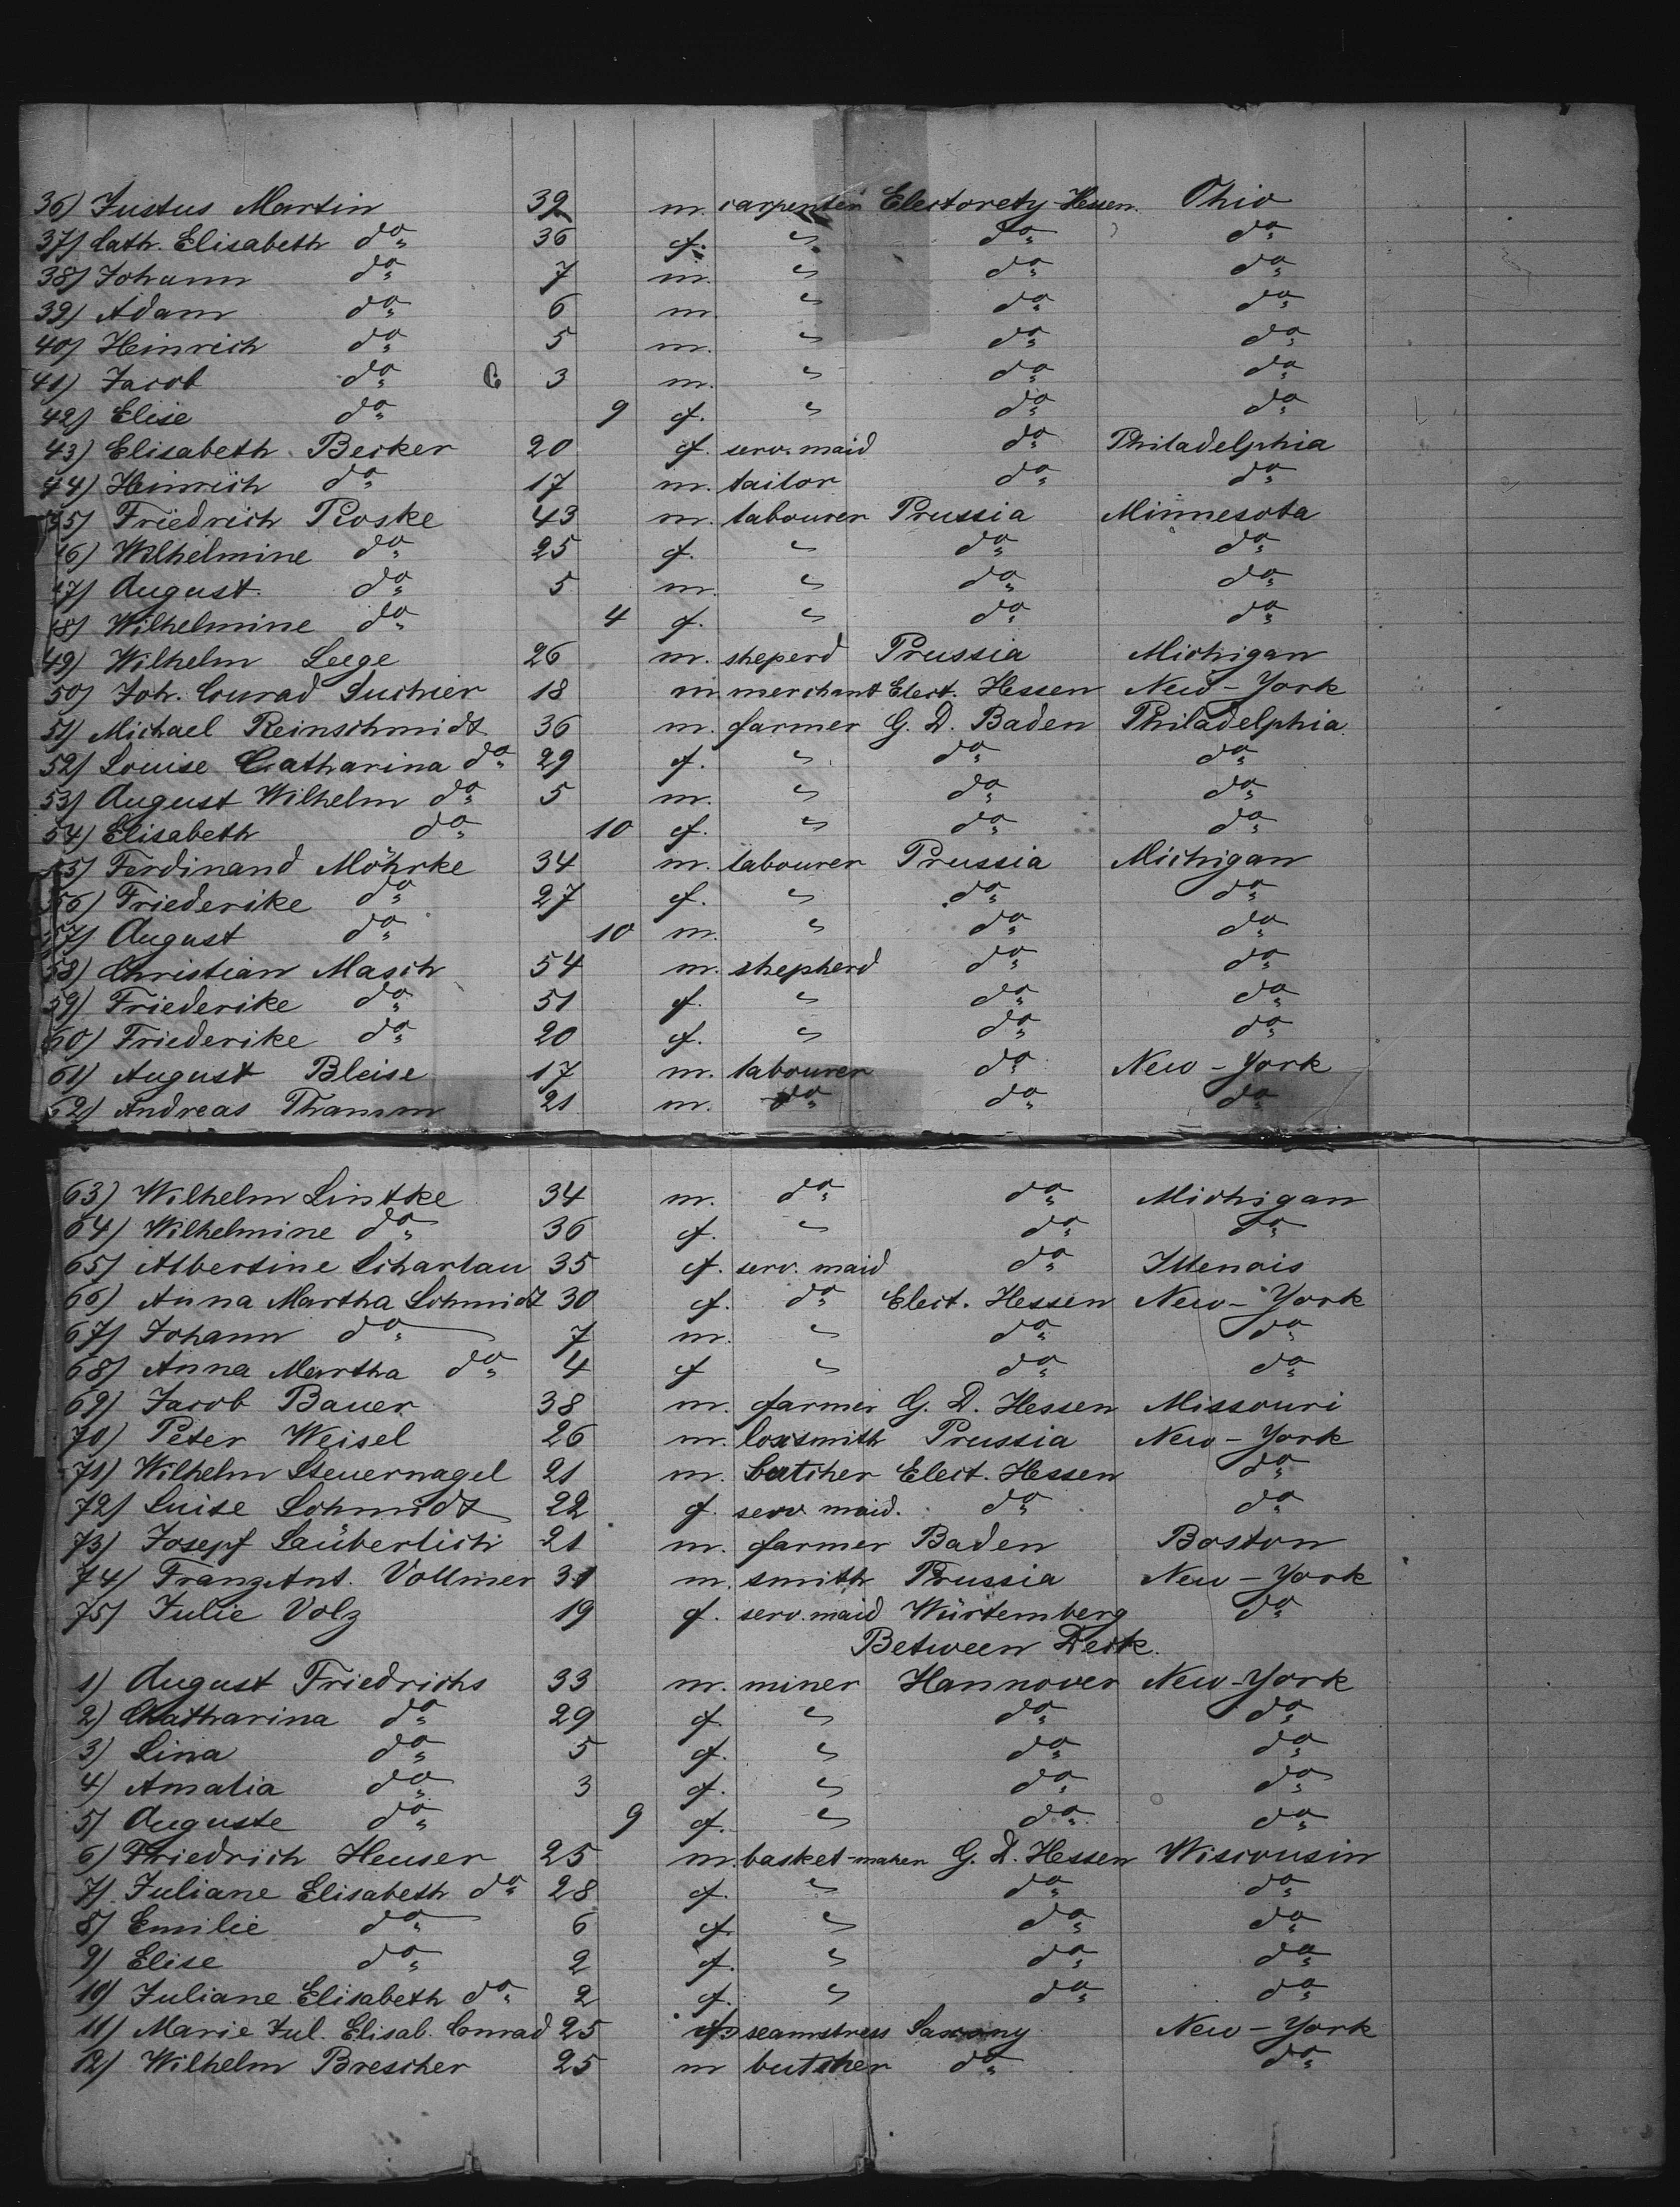 36) Justus Martin 39 m. carpenter Electorety Hessen. Ohio
37) Cath. Elisabeth do 36 f. " do do
38) Johann do 7 m. " do do
39) Adam do 6 m. " do do
40) Heinrich do 5 m. " do do
41) Jacob do 3 m. " do do
42) Elise do 9 f. " do do
43) Elisabeth Becker 20 f. serv. maid do Philadelphia
44) Heinrich do 17 m. tailor do do
45) Friedrich Proske 43 m. labourer Prussia Minnesota
46) Wilhelmine do 25 f. " do do
47) August do 5 m. " do do
48) Wilhelmine do 4 f. " do do
49) Wilhelm Leege 26 m. sheperd Prussia Michigan
50) Joh. Conrad Suchier 18 m merchant Elect. Hessen New-York
51) Michael Reinschmidt 36 m. farmer G. D. Baden Philadelphia
52) Louise Catharina do 29 f. " do do
53) August Wilhelm do 5 m. " do do
54) Elisabeth do 10 f. " do do
55) Ferdinand Möhrke 34 m. labourer Prussia Michigan
56) Friederike do 27 f. " do do
57) August do 10 m. " do do
58) Christian Masch 54 m. shepherd do do
59) Friederike do 51 f. " do do
60) Friederike do 20 f. " do do
61) August Bleise 17 m. labourer do New-York
62) Andreas Thamm 21 m. do do do
63) Wilhelm Lintke 34 m. do do Michigan
64) Wilhelmine do 36 f. " do do
65) Albertine Scharlau 35 f. serv. maid do Illenois
66) Anna Martha Schmidt 30 f. do Elect. Hessen New-York
67) Johann do 7 m. " do do
68) Anna Martha do 4 f " do do
69) Jacob Bauer 38 m. farmer G. D. Hessen Missouri
70) Peter Weisel 26 m. locksmith Prussia New-York
71) Wilhelm Steuernagel 21 m. butcher Elect. Hessen do
72) Luise Schmidt 22 f. serv maid. do do
73) Josepf Saüberlich 21 m. farmer Baden Boston
74) Franz Ant. Vollmer 31 m. smith Prussia New-York
75) Julie Volz 19 f. serv. maid Würtemberg do
Between Deck.
1) August Friedrichs 33 m. miner Hannover New-York
2) Chatharina do 29 f. " do do
3) Lina do 5 f. " do do
4) Amalia do 3 f. " do do
5) Auguste do 9 f. " do do
6) Friedrich Heuser 25 m. basket-maker G. D. Hessen Wisconsin
7) Juliane Elisabeth do 28 f. " do do
8) Emilie do 6 f. " do do
9) Elise do 2 f. " do do
10) Juliane Elisabeth do 2 f. " do do
11) Marie Jul. Elisab. Conrad 25 seamstress Saxony New-York
12) Wilhelm Brescher 25 m butcher do do